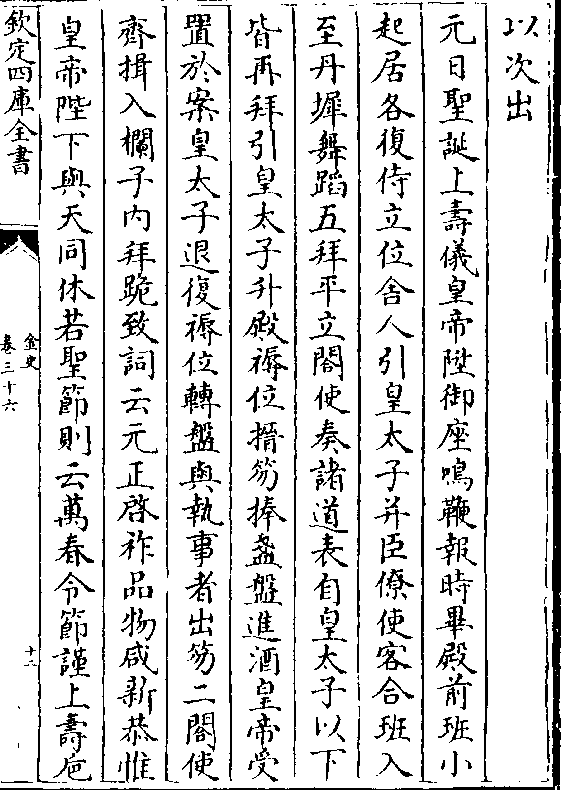 以次出
元日聖誕上壽儀皇帝陞御座鳴鞭報時畢殿前班小
起居各復侍立位舍人引皇太子并臣僚使客合班入
至丹墀舞蹈五拜平立閤使奏諸道表自皇太子以下
皆再拜引皇太子升殿褥位搢笏捧盞盤進酒皇帝受
置於案皇太子退復褥位轉盤與執事者出笏二閤使
齊揖入欄子内拜跪致詞云元正啓祚品物咸新恭惟
皇帝陛下與天同休若聖節則云萬春令節謹上壽巵
欽定四庫全書
金史
卷三十六
十二